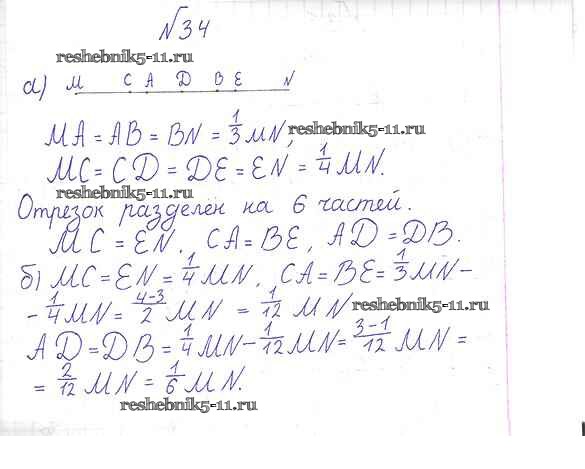 №34
reshebnik5-11.ru
а) M C A D B E N
MA = AB = BN = 1/3 MN, reshebnik5-11.ru
MC = CD = DE = EN = 1/4 MN.
reshebnik5-11.ru
Отрезок разделен на 6 частей.
MC = EN, CA = BE, AD = DB.
б) MC = EN = 1/4 MN, CA = BE = 1/3 MN -
- 1/4 MN = 4-3/2 MN = 1/12 MN reshebnik5-11.ru
AD = DB = 1/4 MN - 1/12 MN = 3-1/12 MN =
= 2/12 MN = 1/6 MN.
reshebnik5-11.ru